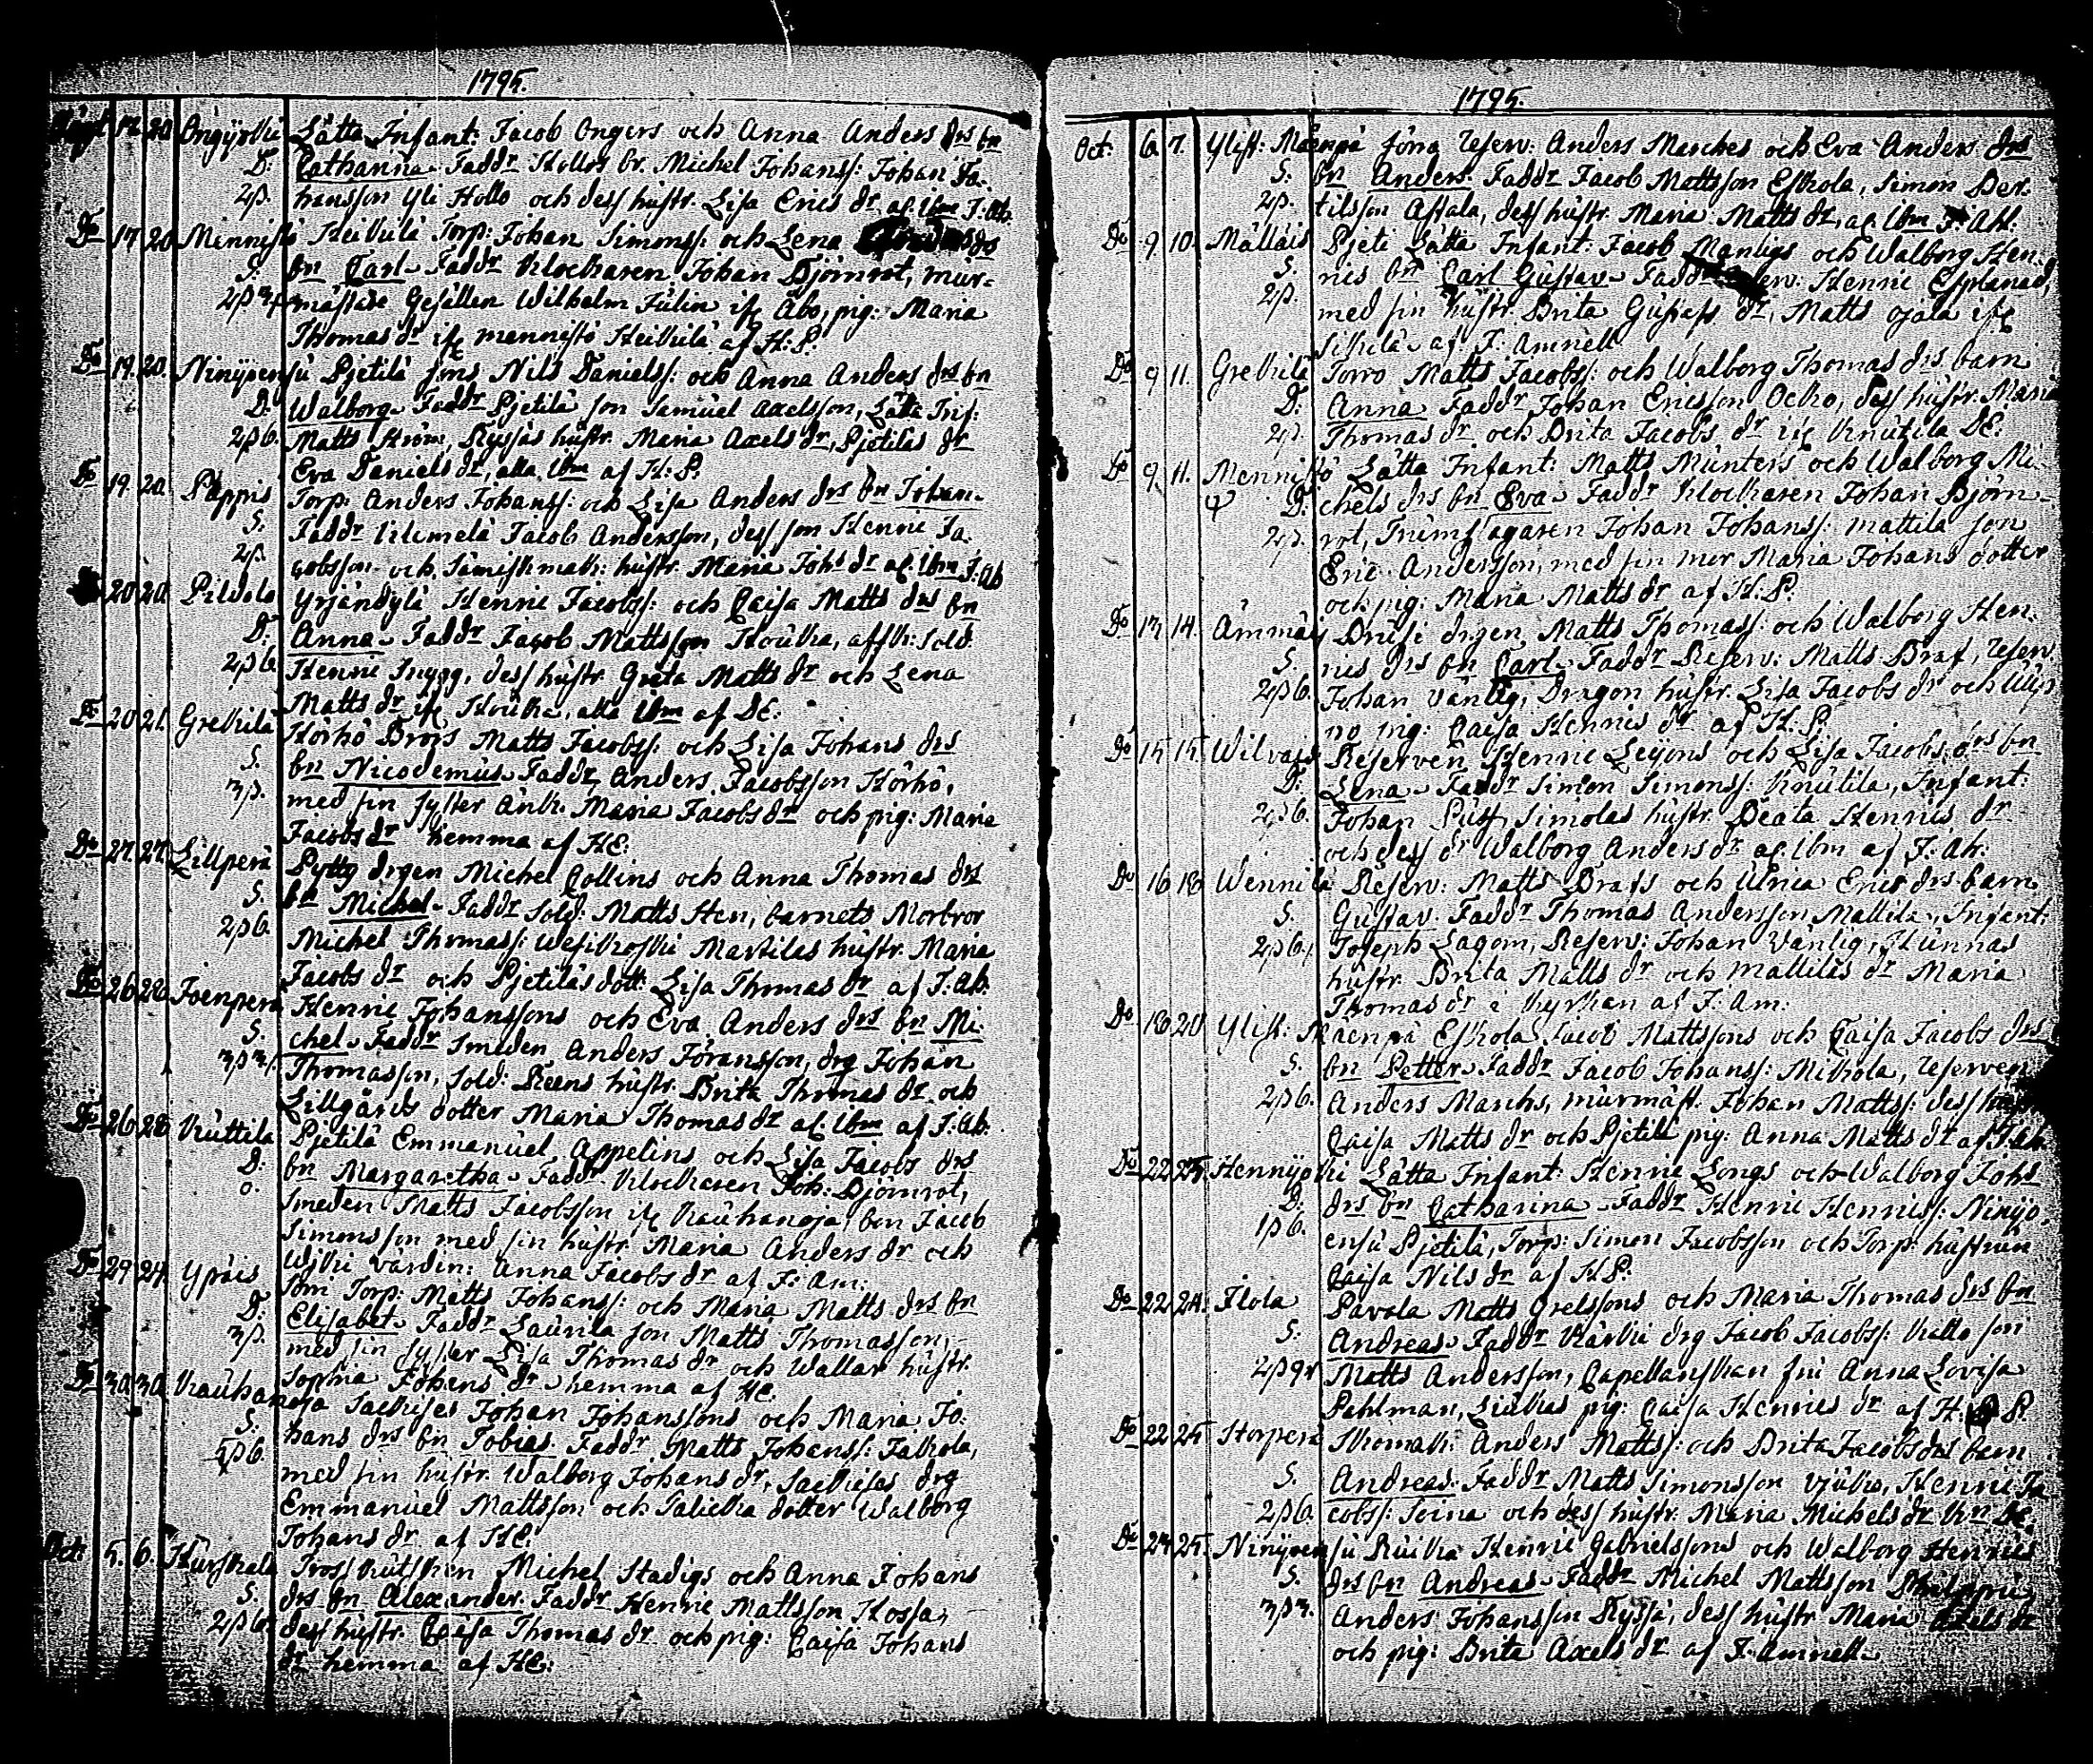 1795.
Sept. 17. 20. Ongijoki Lätta Infant: Jacob Ongers och Anna Anders drs bn
D. Catharina Faddr Hollos br. Michel Johanss: Johan Jo-
2 p. hansson Yli Hollo och dess hustr. Lisa Erics dr al. ibm J: Ah.
Do 17 20 Mennistö Heikkilä Torp: Johan Simonss: och Lena drs
S. bn Carl Faddr Klockaren Johan Björnrot, mur-
2 p mästare Gesällen Wilhelm Julin ifr Åbo, pig: Maria
Thomas dr ifr mennistö Heikkilä af H: P.
Do 19. 20. Ninijoensu Pjetilä sons Nils Daniels: och Anna Anders drs bn
D. Walborg Faddr Pjetilä son Samuel Axelsson, Lätta Inf:
2 p 6. Matts Ström, Ryssäs hustr. Maria Axels dr, Pjetiläs dr
Eva Daniels dr, alla ibm af H: P.
Do 19. 20. Pappis Torp: Anders Johanss: och Lisa Anders drs bn Johan
S. Faddr Klemelä Jacob Andersson, dess son Henric Ja-
2 p. cobsson och hustr. Maria Joh: dr al. ibm J: Ah
20 20. Pildola Yrjändylä Henric Jacobss: och Caisa Matts drs bn
D. Anna Faddr Jacob Mattsson Houkka, Sold.
2 p 6. Henric Snygg, dess hustr. Greta Matts dr och Lena
Matts dr ifr Houkka, alla ibm af DE:
Do 20 21. Grekkilä Hörhö Brors Matts Jacobss: och Lisa Johans drs
S. bn Nicodemus Faddr Anders Jacobsson Hörhö,
3 p. med sin syster Änk. Maria Jacobs dr och pig: Maria
Jacobs dr hemma af HE:
Do 27. 27. Lillperä Pytty drgen Michel Collins och Anna Thomas drs
S. bn Michel Faddr Sold: Matts Hen, barnets Morbror
2 p 6. Michel Thomass: Wesikoski Markilas hustr. Maria
Jacobs dr och Pjetiläs dott: Lisa Thomas dr af J: Ah.
Do 26 28 Joenperä Henric Johanssons och Eva Anders drs bn Mi-
S. chel Faddr Smeden Anders Göransson, drg Johan
3 p Thomasson, Sold: Reens hustr. Brita Thomas dr och
Lillgårds dotter Maria Thomas dr al. ibm af J: Ah.
Do 26 28. Kuttila Pjetilä Emmanuel Appelins och Lisa Jacobs drs
D. bn Margaretha Faddr Klockaren Joh: Björnrot,
o. Smeden Matts Jacobsson ifr Kauhanoja, bon Jacob
Simonsson med sin hustr. Maria Anders dr och
Wjkki värdin: Anna Jacobs dr af J: Am:
Do 29 29. Ypäis Torp: Matts Johanss: och Maria Matts drs bn
D. Elisabet Faddr Laurila son Matts Thomasson,
3 p. med sin syster Lisa Thomas dr och Wallar hustr.
Sophia Johans dr hemma af HE.
Do 30. 30. Kauhanoja Johan Johanssons och Maria Jo-
S. hans drs bn Tobias Faddr Matts Johanss: Jalkola,
5 p 6. med sin hustr. Walborg Johans dr, drg
Emmanuel Mattsson och dotter Walborg
Johans dr af HE.
Oct: 5. 6. Kurkkala Michel Stadigs och Anna Johans
S. drs bn Alexander Faddr Henric Mattsson Hossa,
2 p 6. dess hustr. Caisa Thomas dr och pig: Caisa Johans
dr hemma af HE:
1795.
Oct. 6. 7. Ylist: Mäenpä förra Reserv: Anders Marckes och Eva Anders drs
S. bn Anders Faddr Jacob Mattsson Eskola, Simon Ber-
2 p. tilsson Assala, dess hustr. Maria Matts dr, al ibm J: Ah:
Do 9 10. Mälläis Pjeti Lätta Infant: Jacob Manligs och Walborg Hen-
S. rics bn Carl Gustav Faddr Reserv: Henric Esplanad,
2 p. med sin hustr. Brita Gustafs dr, Matts Ojala ifr
Sikkilä af J: Amnell
Do 9 11. Grekkilä Torvo Matts Jacobss: och Walborg Thomas drs barn
D: Anna Faddr Johan Ericsson Ocko, dess hustr. Maria
2 p. Thomas dr och Brita Jacobs dr ifr Knutila DE:
Do 9. 11. Mennistö Lätta Infant: Matts Munters och Walborg Mi-
D: chels drs bn Eva Faddr Klockaren Johan Björn-
2 p. rot, Trumslagaren Johan Johanss: mattila son
Eric Andersson, med sin mor Maria Johans dotter
och pig: Maria Matts dr af H: P.
Do 13 14. Ämmäis Drusi drgen Matts Thomass: och Walborg Hen-
S. rics drs bn Carl Faddr Reserv: Matts Braf, reserv.
2 p 6. Johan Vänlig, Dragon hustr. Lisa Jacobs dr och
pig: Caisa Henrics dr af H: P.
Do 15 15. Wilvais Reserven Henric Leijons och Lisa Jacobs drs bn
D. Lena Faddr Simon Simonss: Knutila, Infant:
2 p 6. Johan Lust, Simolas hustr. Beata Henrics dr
och dess dr Walborg Anders dr al. ibm af J: Ah:
Do 16 18 Wennilä Reserv: Matts Brafs och Ulrica Erics drs barn
S. Gustav Faddr Thomas Andersson Mattila, Infant:
2 p 6. Joseph Lagom, Reserv: Johan Vänlig, Hunnas
hustr. Brita Matts dr och Mattilas dr Maria
Thomas dr i kyrkan af J: Am:
Do 18 20 Ylist: Mäenpä Eskola Jacob Mattssons och Caisa Jacobs drs
S. bn Petter Faddr Jacob Johanss: Mikkola, reserven
2 p 6. Anders Marcks, murmäst. Johan Mattss: dess
Caisa Matts dr och Pjetilä pig: Anna Matts dr af J: Ah
Do 22 25. Hennijoki Lätta Infant: Henric Longs och Walborg Johs
D: drs bn Catharina Faddr Henric Henricss: Ninijo-
1 p 6. ensu Pjetilä, Torp: Simon Jacobsson och Torp: hustrun
Caisa Nils dr af H P:
Do 22 24. Flola Pavola Matts Grelssons och Maria Thomas drs bn
S. Andreas Faddr Kärki drg Jacob Jacobss: Kallo son
2 p 9 r Matts Andersson, Capellanskan fru Anna Lovisa
Pahlman, pig: Caisa Henrics dr af H: P.
Do 22 25 Storperä Anders Mattss: och Brita Jacobs drs barn
S. Andreas Faddr Matts Simonsson Henric Ja-
2 p 6. cobss: och dess hustr. Maria Michels dr
Do 24 25. Ninijoensu Ruikka Henric Gabrielssons och Walborg Henrics
S. drs bn Andreas Faddr Michel Mattsson
3 p Anders Johansson Ryssä, dess hustr Maria Axels dr
och pig: Brita Axels dr af J: Amnell